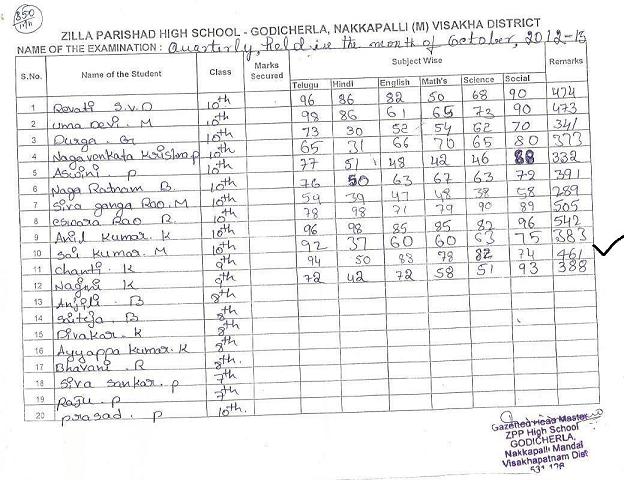 350
ZILLA PARISHAD HIGH SCHOOL - GODICHERLA, NAKKAPALLI (M) VISAKHA DISTRICT
NAME OF THE EXAMINATION : Quarterly, held in the month of October, 2012-13
S.No. Name of the Student Class Marks Secured Subject Wise Remarks
Telugu Hindi English Math's Science Social
1 Revati S.V.D 10th 96 86 82 50 68 90 474
2 Uma Devi. M 10th 98 86 61 65 73 90 473
3 Durga. Gr 10th 73 30 52 54 62 70 341
4 Nagavenkata Krishna p 10th 65 31 66 70 65 80 373
5 Aswini P 10th 77 51 48 42 46 68 332
6 Naga Ratnam B. 10th 76 50 63 67 63 72 391
7 Siva ganga Rao. M 10th 59 39 47 48 38 58 289
8 eswara Rao R. 10th 78 98 71 79 90 89 505
9 Anil Kumar. K 10th 96 98 85 85 82 96 542
10 Sai Kumar. M 10th 92 37 60 60 63 75 383
11 Chanti. K 9th 94 50 83 78 82 74 461
12 Nagini K 9th 72 42 72 58 51 93 388
13 Anjili. B 8th
14 Sriteja. B 8th
15 Divakar. K 8th
16 Ayyappa Kumar. K 8th
17 Bhavani. R 8th.
18 Siva Sankar. p 7th
19 Raju. p 7th
20 prasad. p 10th.
Gazetted Head Master
ZPP High School
GODICHERLA,
Nakkapalli Mandal
Visakhapatnam Dist
531 126